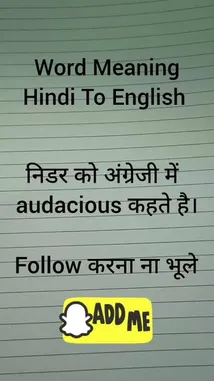 Word Meaning
Hindi To English
निडर को अंग्रेजी में
audacious कहते है।
Follow करना ना भूले
ADD ME